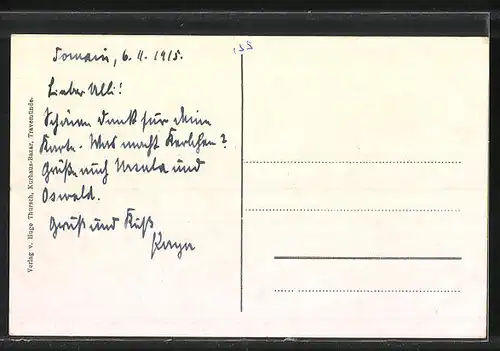 6. 11. 1915.
Lieber Ulli!
Schönen Dank für deine
Karte. Was macht Karlchen?
Grüße auch Ursula und
Oswald.
Gruß und Kuß
Verlag v. Hugo Thursch, Kurhaus-Bazar, Travemünde.